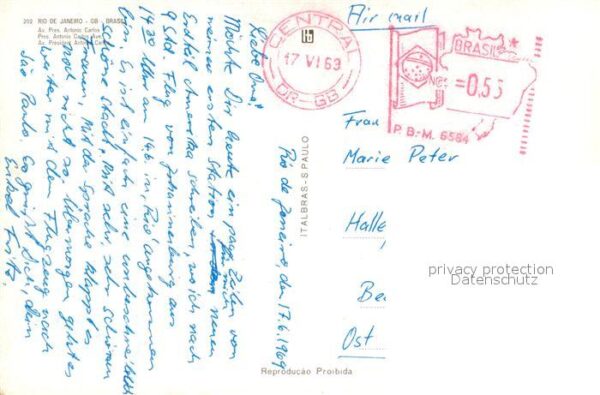 202 RIO DE JANEIRO - GB - BRASIL
Av. Pres. Antonio Carlos
Pres. Antonio Carlos Ave.
Av. President Antonio Carlos
Air mail
CENTRAL
17 VI 69
DR-GB
BRASIL
NCr
=0,55
P.B.-M. 6584
Rio de Janeiro, den 17.6.1969
Liebe Oma!
Möchte Dir heute ein paar Zeilen von
meiner ersten Station für mich neuen
Erdteil Amerika schreiben, wo ich nach
9 Std. Flug von Johannesburg aus
14.30 Uhr am 14.6. in Rio angekommen
bin. Es ist einfach eine unbeschreiblich
schöne Stadt, mit sehr schönem
Mit der Sprache klappt es
noch nicht so. Übermorgen geht es
weiter mit dem Flugzeug nach
São Paulo. Es grüßt Dich, dein
Enkel Fritz
ITALBRAS - S. PAULO
Frau
Marie Peter
Halle
Be
Ost
privacy protection
Datenschutz
Reprodução Proibida